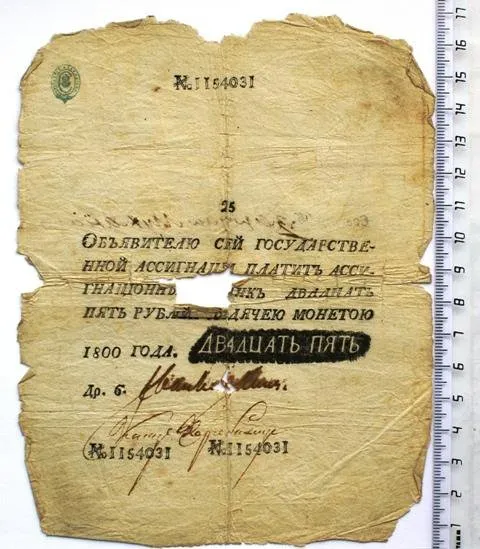 №1154031
25
ОБЪЯВИТЕЛЮ СЕЙ ГОСУДАРСТВЕ-
ННОЙ АССИГНАЦІИ ПЛАТИТЪ АССИ-
ГНАЦІОНН НКЪ ДВАДЦАТЬ
ПЯТЬ РУБЛЕЙ ХОДЯЧЕЮ МОНЕТОЮ
1800 ГОДА. ДВАДЦАТЬ ПЯТЬ
Др. б.
№1154031 №1154031
17
16
15
14
13
12
11
10
9
8
7
6
5
4
3
2
1